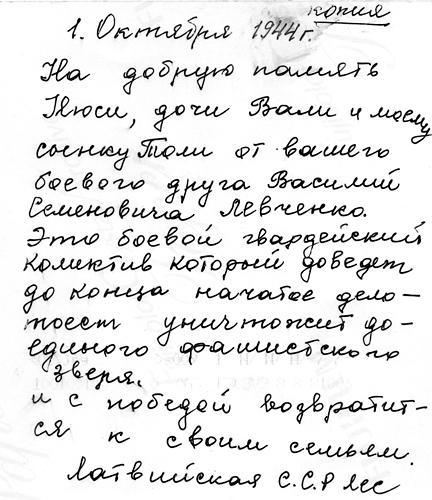 копия
1. Октября 1944 г.
На добрую память
Нюси, дочи Вали и моему
сынку Толи от вашего
боевого друга Василий
Семеновича Левченко.
Это боевой гвардейский
колектив который доведет
до конца начатое дело-
тоест уничтожит до-
единого фашистского
зверя.
и с победой возвратит-
ся к своим семьям.
Латвийская С.С.Р лес